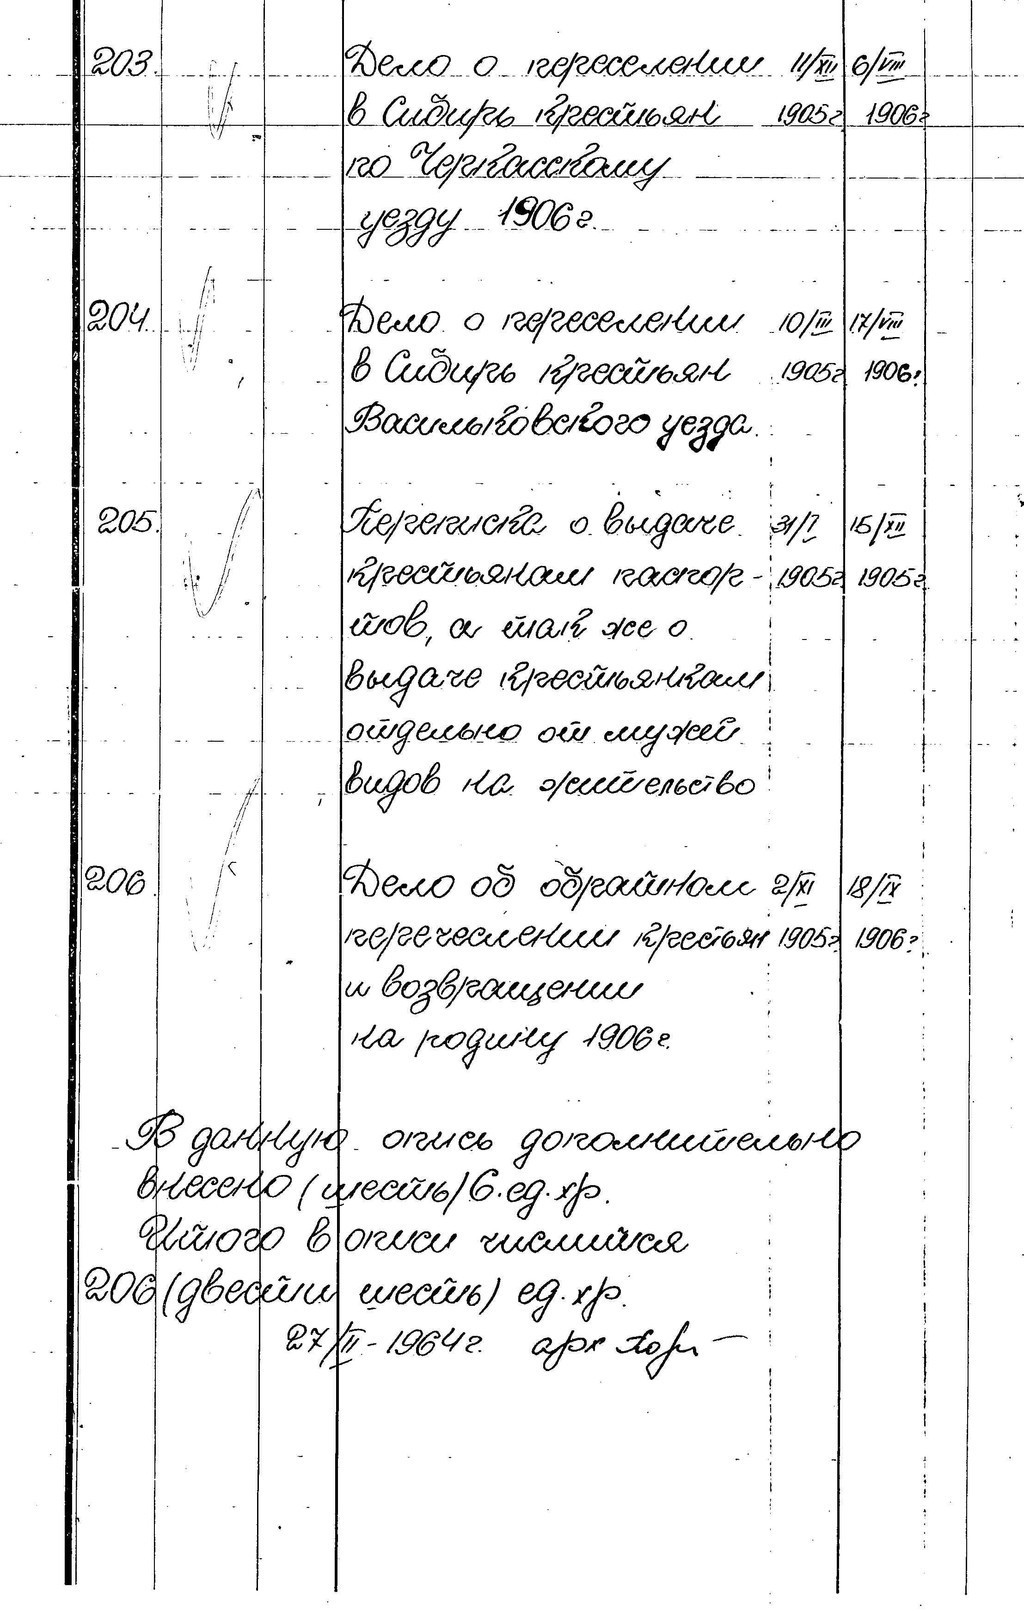 203. Дело о переселении 11/XII 6/VIII
в Сибирь крестьян 1905г 1906г
по Черкасскому
уезду 1906г.
204. Дело о переселении 10/III 17/VIII
в Сибирь крестьян 1905г 1906г
Васильковского уезда.
205. Переписка о выдаче 31/I 15/XII
крестьянам паспор- 1905г 1905г
тов, а так же о
выдаче крестьянкам
отдельно от мужей
видов на жительство
206 Дело об обратном 2/XI 18/IX
перечеслении крестьян 1905г 1906г
и возвращении
на родину 1906г.
В данную опись дополнительно
внесено (шесть) 6.ед.хр.
Итого в описи числится
206 (двести шесть) ед.хр.
27/II-1964г. арх